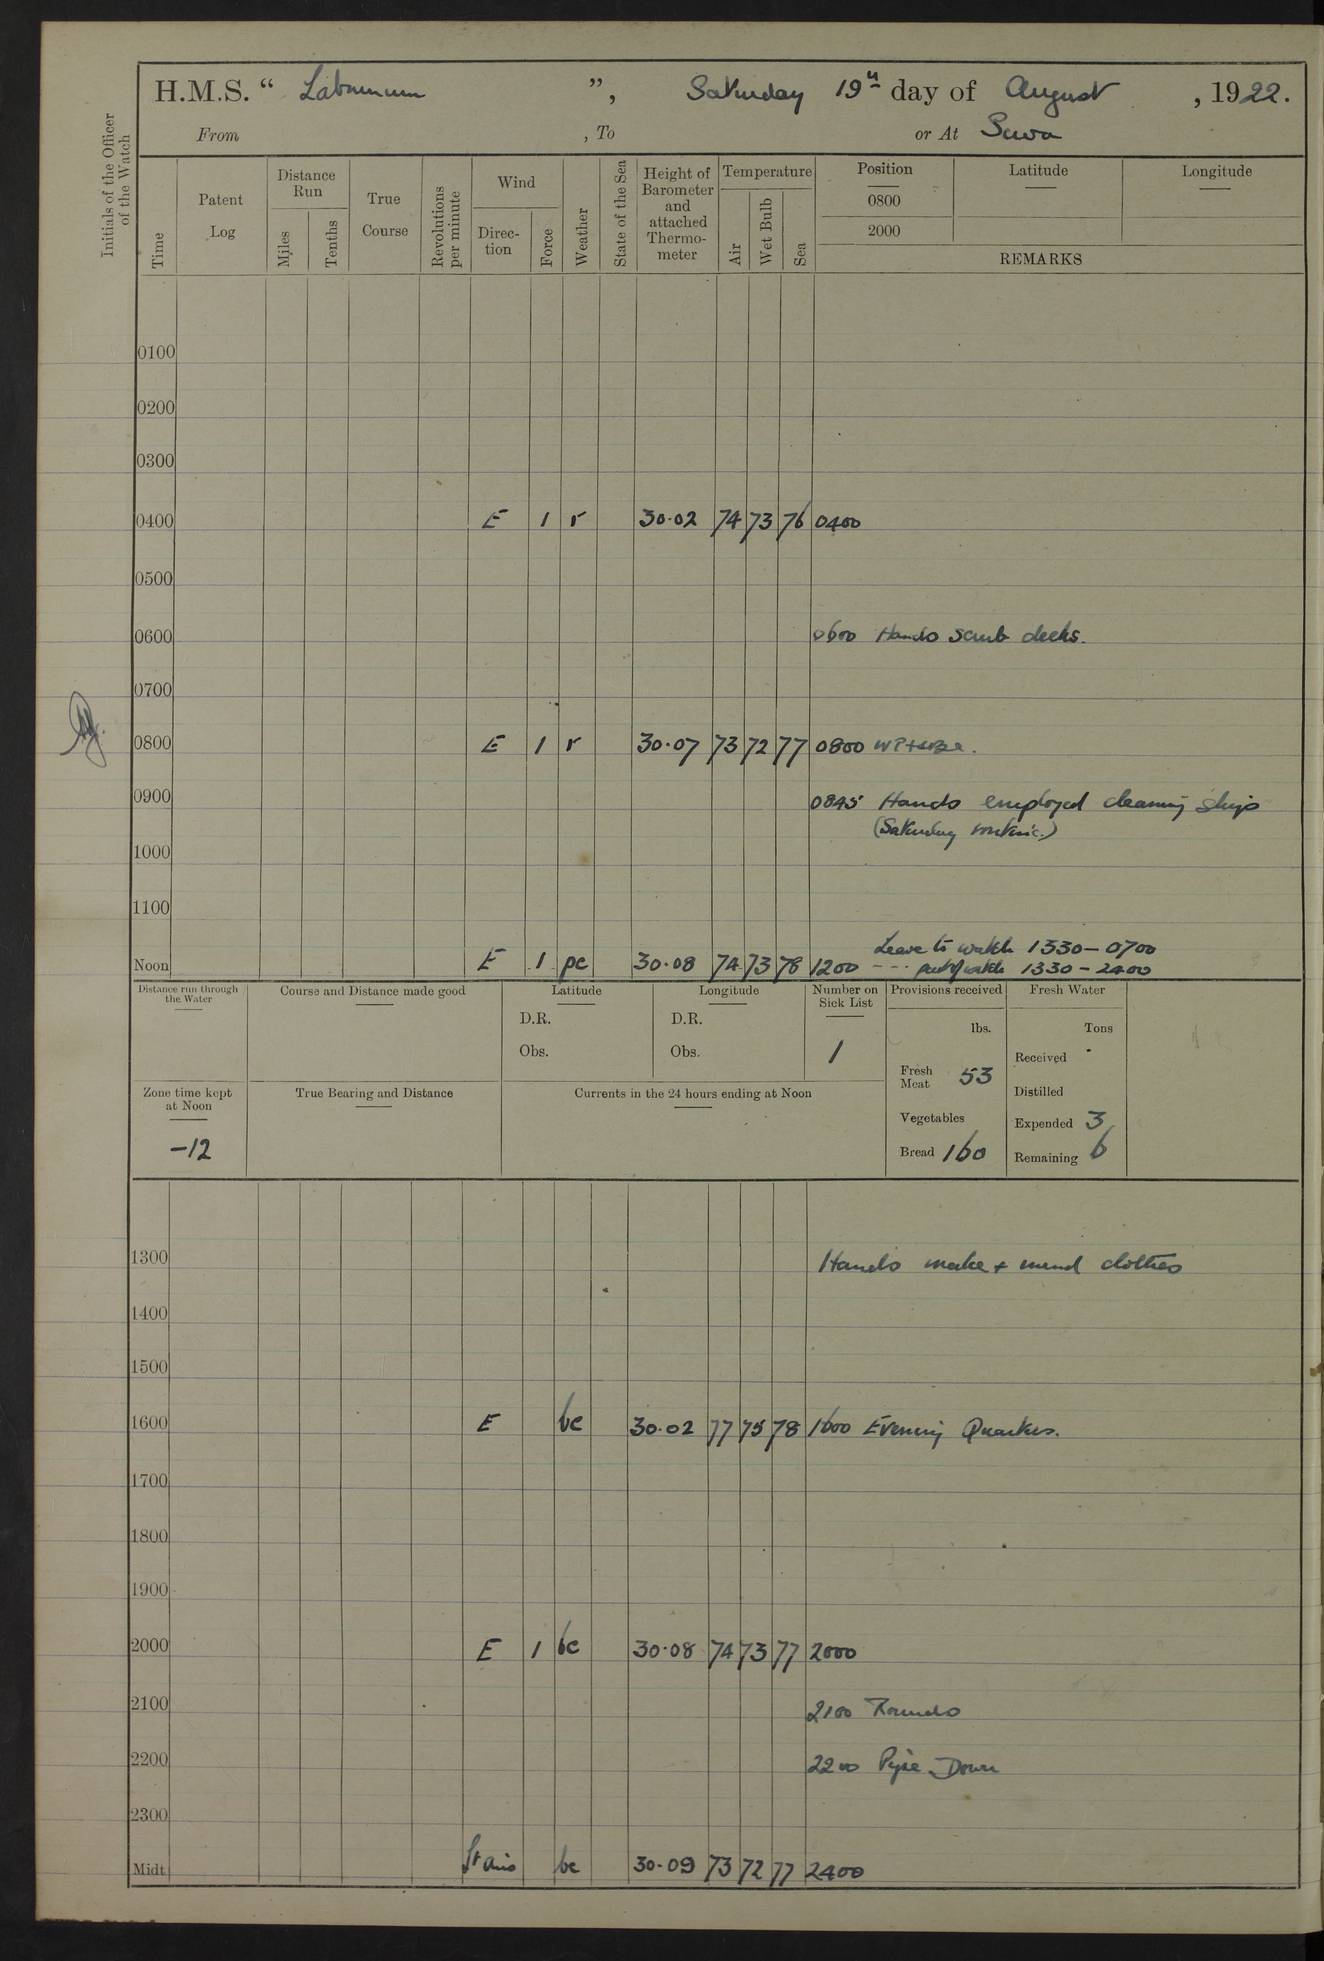 H.M.S. “ Laburnum ”, Saturday 19th day of August, 1922.
From , To or At Suva
Initials of the Officer of the Watch
Time
Patent Log
Distance Run
Miles
Tenths
True Course
Revolutions per minute
Wind
Direc-tion
Force
Weather
State of the Sea
Height of Barometer and attached Thermo-meter
Temperature
Air
Wet Bulb
Sea
Position
0800
2000
Latitude
Longitude
REMARKS
0100
0200
0300
0400 E 1 r 30·02 74 73 76 0400
0500
0600 0600 Hands scrub decks.
0700
0800 E 1 r 30·07 73 72 77 0800
0900 0845 Hands employed cleaning ship
(Saturday routine.)
1000
1100
Leave to watch 1330 – 0700
Noon E 1 pc 30·08 74 73 78 1200 - - - part of watch 1330 – 2400
Distance run through the Water
Course and Distance made good
Latitude
D.R.
Obs.
Longitude
D.R.
Obs.
Number on Sick List
1
Provisions received
lbs.
Fresh Meat 53
Vegetables
Bread 160
Fresh Water
Tons
Received
Distilled
Expended 3
Remaining 6
Zone time kept at Noon
-12
True Bearing and Distance
Currents in the 24 hours ending at Noon
1300 Hands make + mend clothes
1400
1500
1600 E bc 30·02 77 75 78 1600 Evening Quarters.
1700
1800
1900
2000 E 1 bc 30·08 74 73 77 2000
2100 2100 Rounds
2200 2200 Pipe Down
2300
Midt. Lt airs bc 30·09 73 72 77 2400